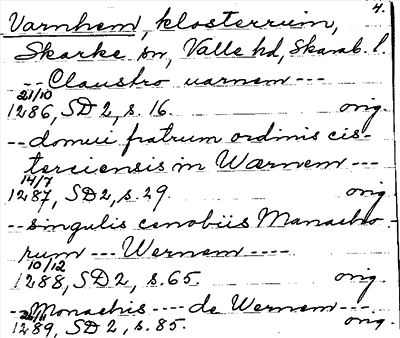 4.
Varnhem, klosterruin,
Skarke sn, Valle hd, Skarab. l.
-- Claustro uarnem ---
21/10
1286, SD 2, s. 16. orig.
-- domui fratrum ordinis cis-
terciensis in Wærnem ---
14/7
1287, SD 2, s. 29. orig.
-- singulis cenobiis Monacho-
rum --- Wernem ----
10/12
1288, SD 2, s. 65. orig.
-- Monachis ---- de Wernem ---
1289, SD 2, s. 85. orig.